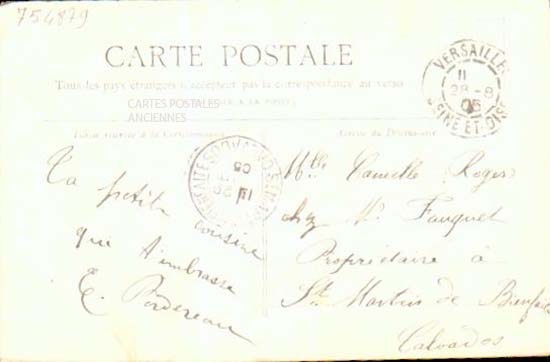 754879
CARTE POSTALE
Tous les pays étrangers n'acceptent pas la correspondance au verso
CARTES POSTALES
ANCIENNES
VERSAILLES
11
28-8
05
SEINE-ET-OISE
Ta petite cousine
qui t'embrasse
E. Bordereau
Mlle Camille Roger
chez Mr Fauquet
Propriétaire à
St Martin de Bienfaite
Calvados